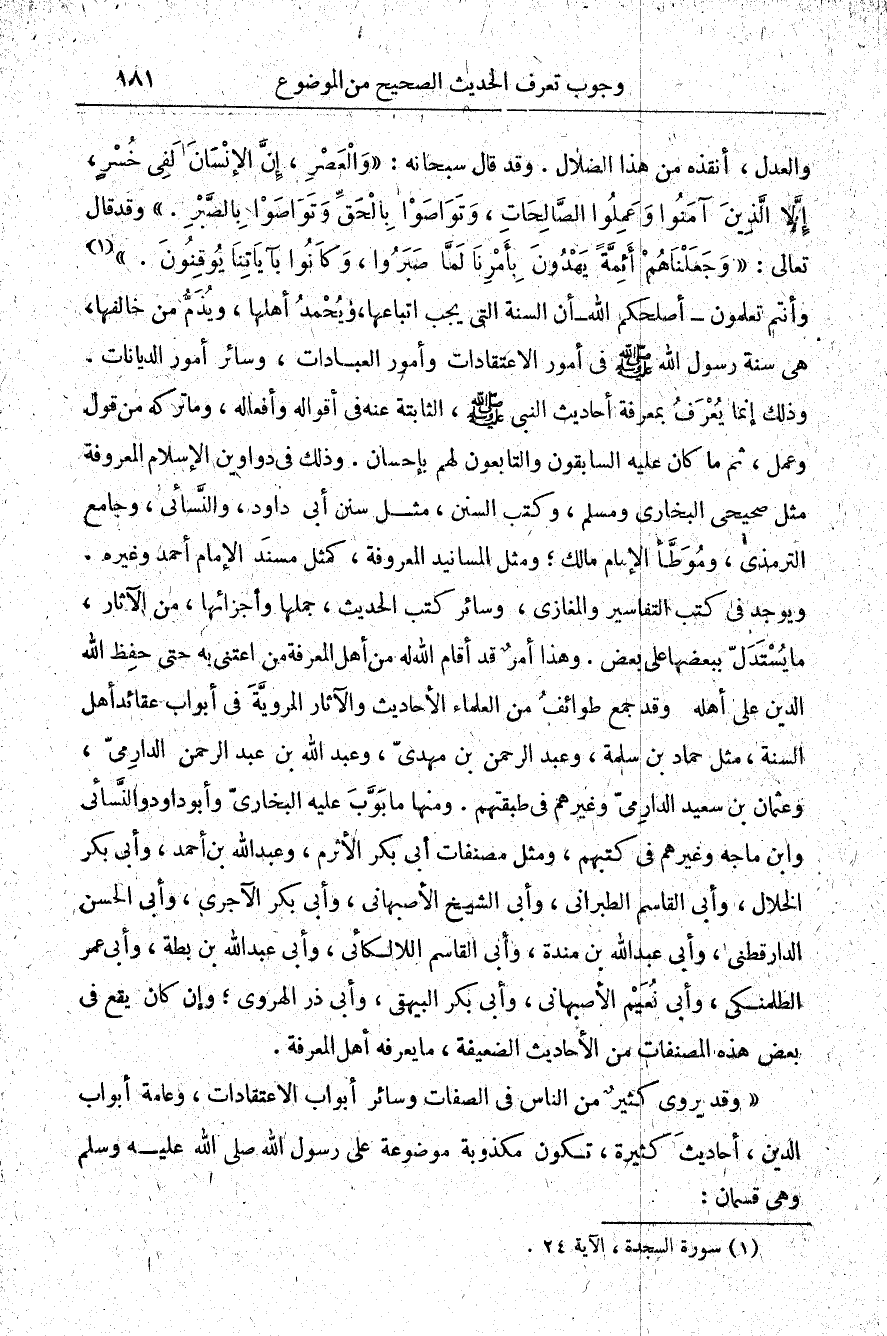 وجوب تعرف الحديث الصحيح من الموضوع ١٨١
والعدل ، أنقذه من هذا الضلال . وقد قال سبحانه : «وَالْعَصْرِ ، إِنَّ الإِنْسَانَ لَفِى خُسْرٍ ،
إِلَّا الَّذِينَ آمَنُوا وَعَمِلُوا الصَّالِحَاتِ ، وَتَوَاصَوْا بِالْحَقِّ وَتَوَاصَوْا بِالصَّبْرِ . » وقد قال
تعالى : « وَجَعَلْنَاهُمْ أَئِمَّةً يَهْدُونَ بِأَمْرِنَا لَمَّا صَبَرُوا ، وَكَانُوا بِآيَاتِنَا يُوقِنُونَ . »(١)
وأنتم تعلمون ــ أصلحكم الله ــ أن السنة التى يجب اتباعها، ويُحْمدُ أهلها ، ويُذَمُّ من خالفها،
هى سنة رسول الله ﷺ فى أمور الاعتقادات وأمور العبــادات ، وسائر أمور الديانات .
وذلك إنما يُعْرَفُ بمعرفة أحاديث النبى ﷺ ، الثابتة عنه فى أقواله وأفعاله ، وماتركه من قول
وعمل ، ثم ما كان عليه السابقون والتابعون لهم بإحسان . وذلك فى دواوين الإسلام المعروفة
مثل صحيحى البخارى ومسلم ، وكتب السنن ، مثــل سنن أبى داود ، والنَّسأئى ، وجامع
الترمذى ، ومُوَطَّأ الإمام مالك ؛ ومثل المسانيد المعروفة ، كمثل مسنَد الإمام أحمد وغيره .
ويوجد فى كتب التفاسير والمغازى ، وسائر كتب الحديث ، جملها وأجزائها ، من الآثار ،
ما يُسْتَدَلّ ببعضها على بعض . وهذا أمرٌ قد أقام الله له من أهل المعرفة من اعتنى به حتى حفِظ الله
الدين على أهله وقد جمع طوائفُ من العلماء الأحاديث والآثار المرويَّةَ فى أبواب عقائد أهل
السنة ، مثل حماد بن سلمة ، وعبد الرحمن بن مهدىّ ، وعبد الله بن عبد الرحمن الدارِمىّ ،
وعثمان بن سعيد الدارِمىّ وغيرهم فى طبقتهم . ومنها ما بَوَّبَ عليه البخارىّ وأبو داود والنَّسأئى
وابن ماجه وغيرهم فى كتبهم ، ومثل مصنفات أبى بكر الأثرم ، وعبدالله بن أحمد ، وأبى بكر
الخلال ، وأبى القاسم الطبرانى ، وأبى الشيخ الأصبهانى ، وأبى بكر الآجرى ، وأبى الحسن
الدارقطنى ، وأبى عبدالله بن مندة ، وأبى القاسم اللالـكأئى ، وأبى عبدالله بن بطة ، وأبى عمر
الطلمنـكى ، وأبى نُعَيْم الأصبهانى ، وأبى بكر البيهقى ، وأبى ذر الهروى ؛ وإن كان يقع فى
بعض هذه المصنفات من الأحاديث الضعيفة ، مايعرفه أهل المعرفة .
« وقد يروى كثيرٌ من الناس فى الصفات وسائر أبواب الاعتقادات ، وعامة أبواب
الدين ، أحاديثَ كثيرة ، تـكون مكذوبة موضوعة على رسول الله صلى الله عليــه وسلم
وهى قسمان :
(١) سورة السجدة ، الآية ٢٤ .